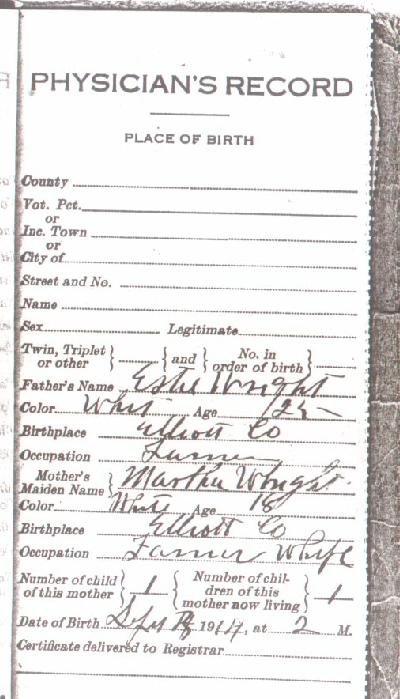 PHYSICIAN'S RECORD
PLACE OF BIRTH
County
Vot. Pct.
or
Inc. Town
or
City of
Street and No.
Name
Sex Legitimate
Twin, Triplet or other } { and { No. in order of birth }
Father's Name Estil Wright
Color White Age 25
Birthplace Elliott Co
Occupation Farmer
Mother's Maiden Name } Martha Wright
Color White Age 18
Birthplace Elliott Co
Occupation Farmer Whife
Number of child of this mother } 1 { Number of children of this mother now living } 1
Date of Birth 1914, at 2 M.
Certificate delivered to Registrar